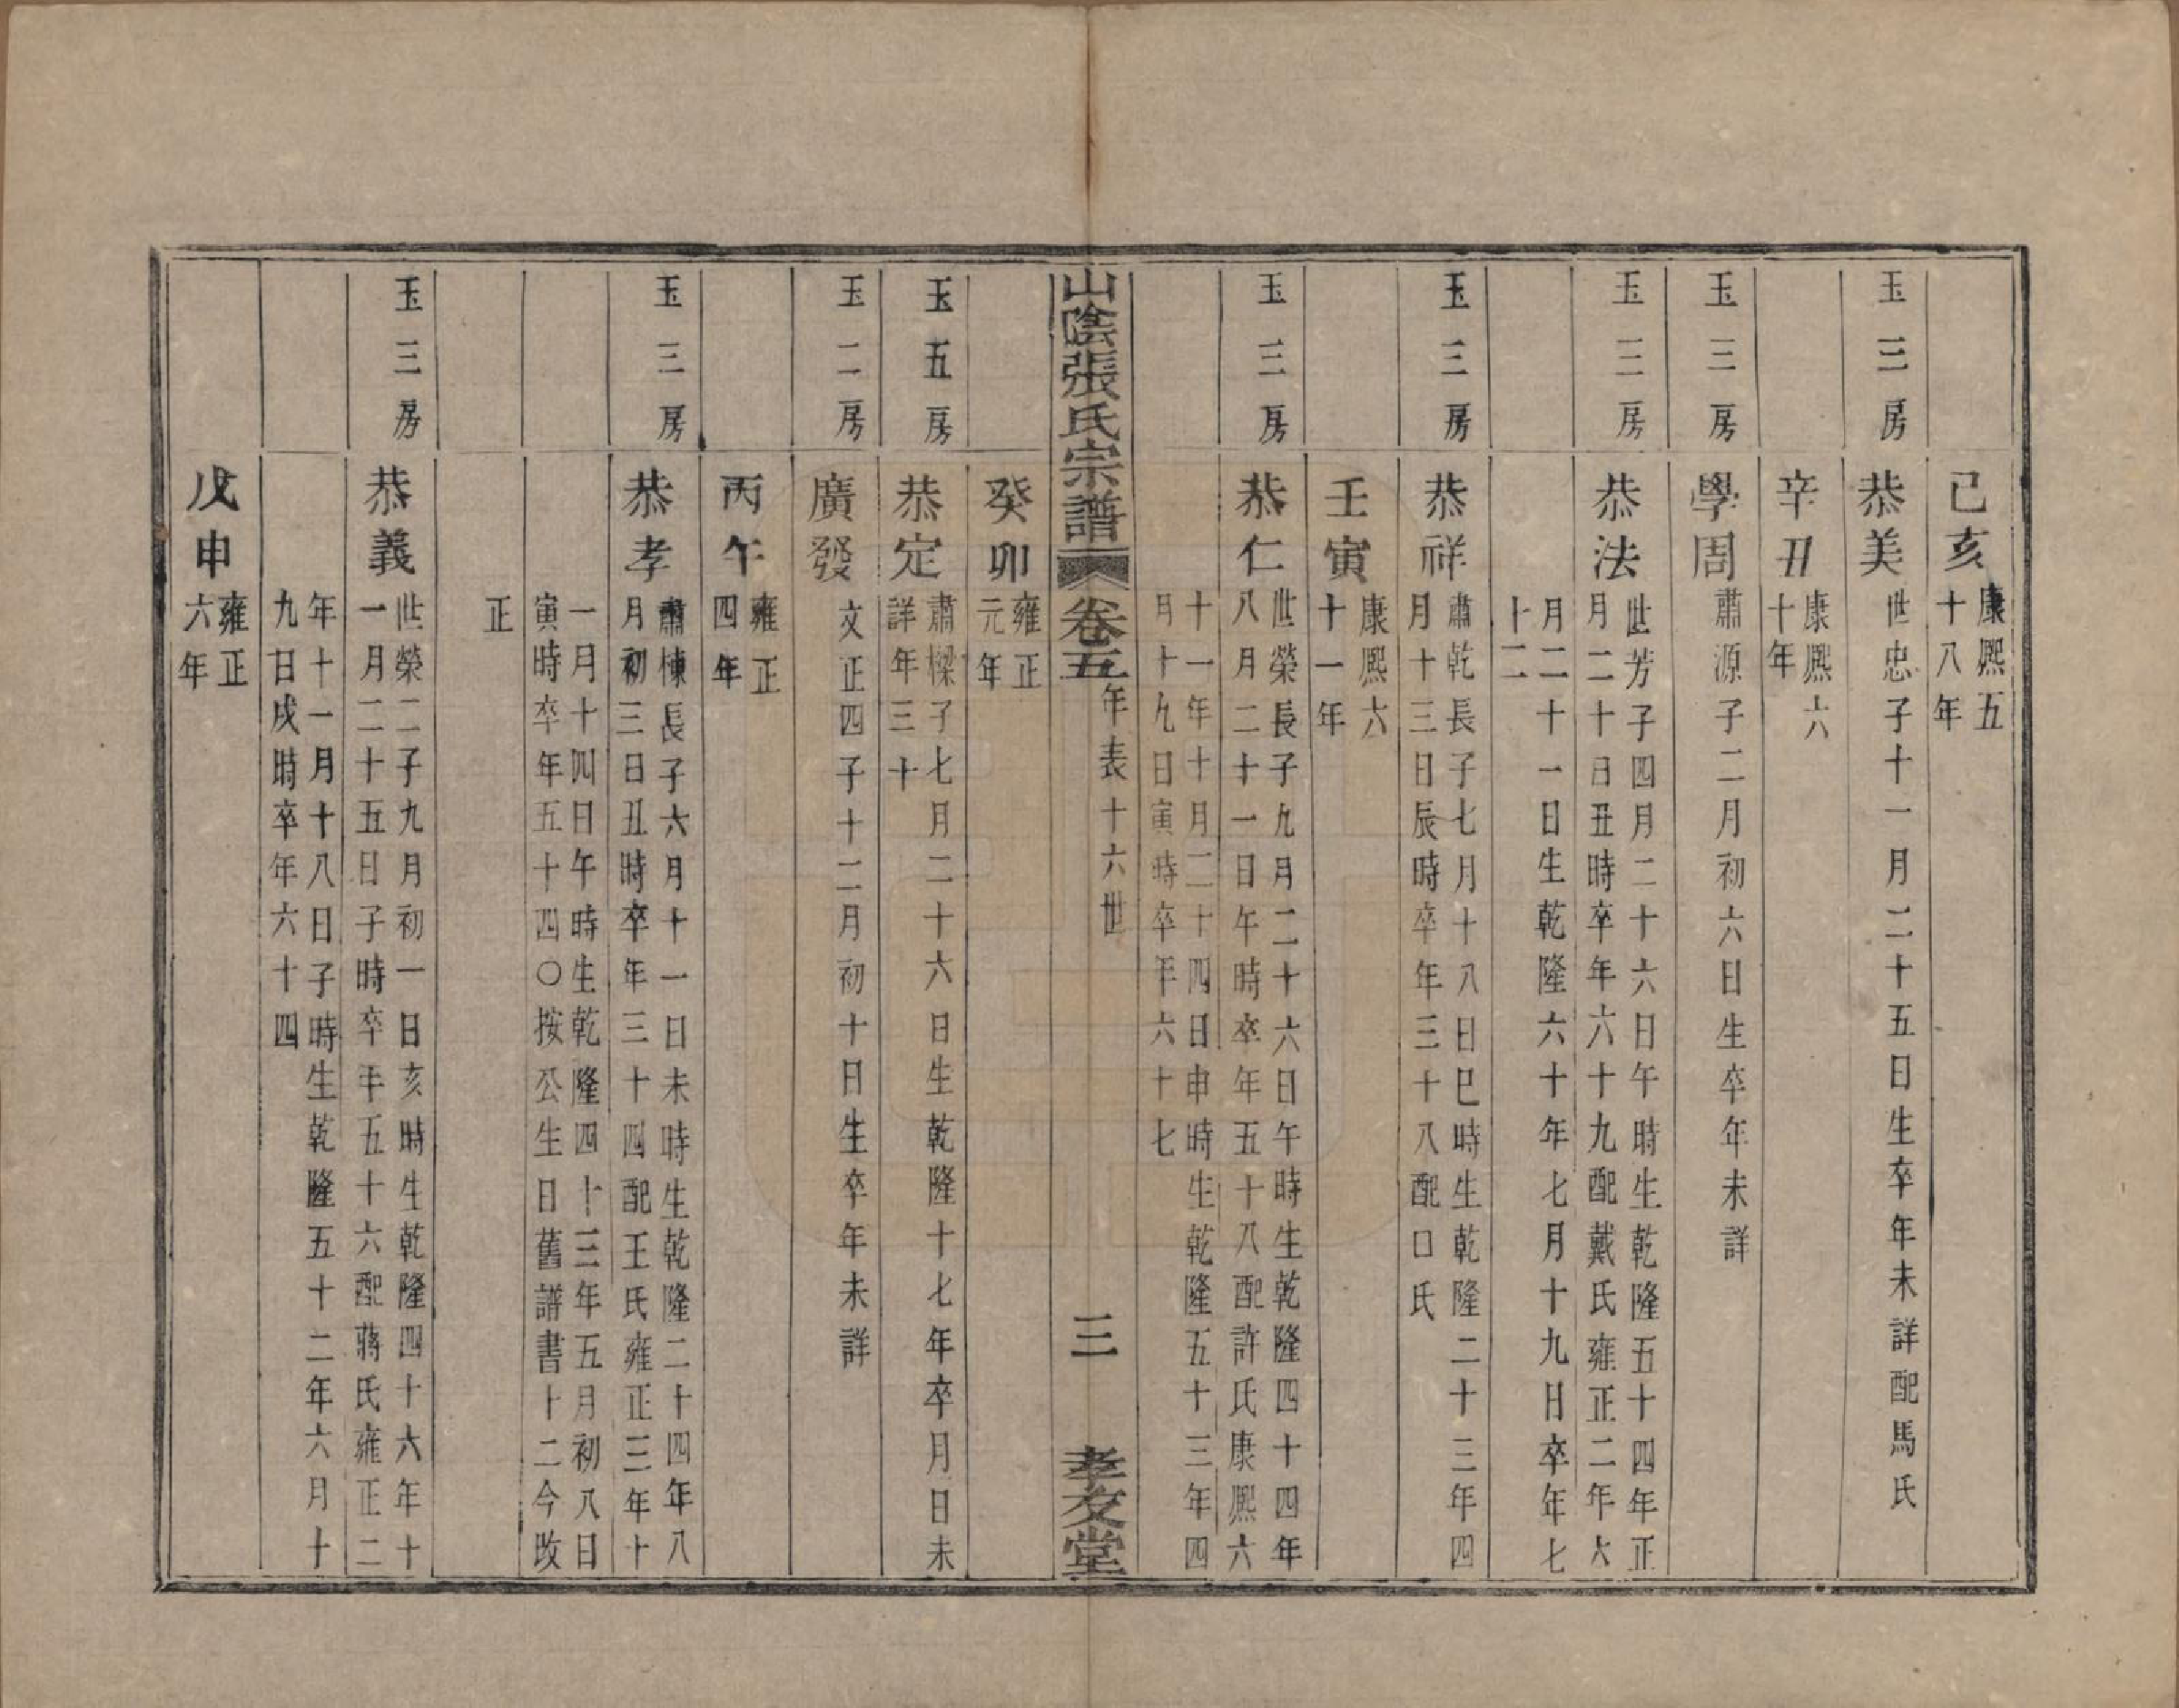 己亥 康熙五
十八年
玉三房 恭美 世忠子十一月二十五日生卒年未詳配馬氏
辛丑 康熙六
十年
玉三房 學周 肅源子二月初六日生卒年未詳
玉三房 恭法 世芳子四月二十六日午時生乾隆五十四年正
月二十日丑時卒年六十九配戴氏雍正二年六
月二十一日生乾隆六十年七月十九日卒年七
十二
玉三房 恭祥 肅乾長子七月十八日巳時生乾隆二十三年四
月十三日辰時卒年三十八配口氏
壬寅 康熙六
十一年
玉三房 恭仁 世榮長子九月二十六日午時生乾隆四十四年
八月二十一日午時卒年五十八配許氏康熙六
十一年十月二十四日申時生乾隆五十三年四
月十九日寅時卒年六十七
山陰張氏宗譜 卷五 年表十六世 三 孝友堂
癸卯 雍正
元年
玉五房 恭定 肅樑子七月二十六日生乾隆十七年卒月日未
詳年三十
玉二房 廣發 文正四子十二月初十日生卒年未詳
丙午 雍正
四年
玉三房 恭孝 肅棟長子六月十一日未時生乾隆二十四年八
月初三日丑時卒年三十四配王氏雍正三年十
一月十四日午時生乾隆四十三年五月初八日
寅時卒年五十四〇按公生日舊譜書十二今改
正
玉三房 恭義 世榮二子九月初一日亥時生乾隆四十六年十
一月二十五日子時卒年五十六配蔣氏雍正二
年十一月十八日子時生乾隆五十二年六月十
九日戌時卒年六十四
戊申 雍正
六年